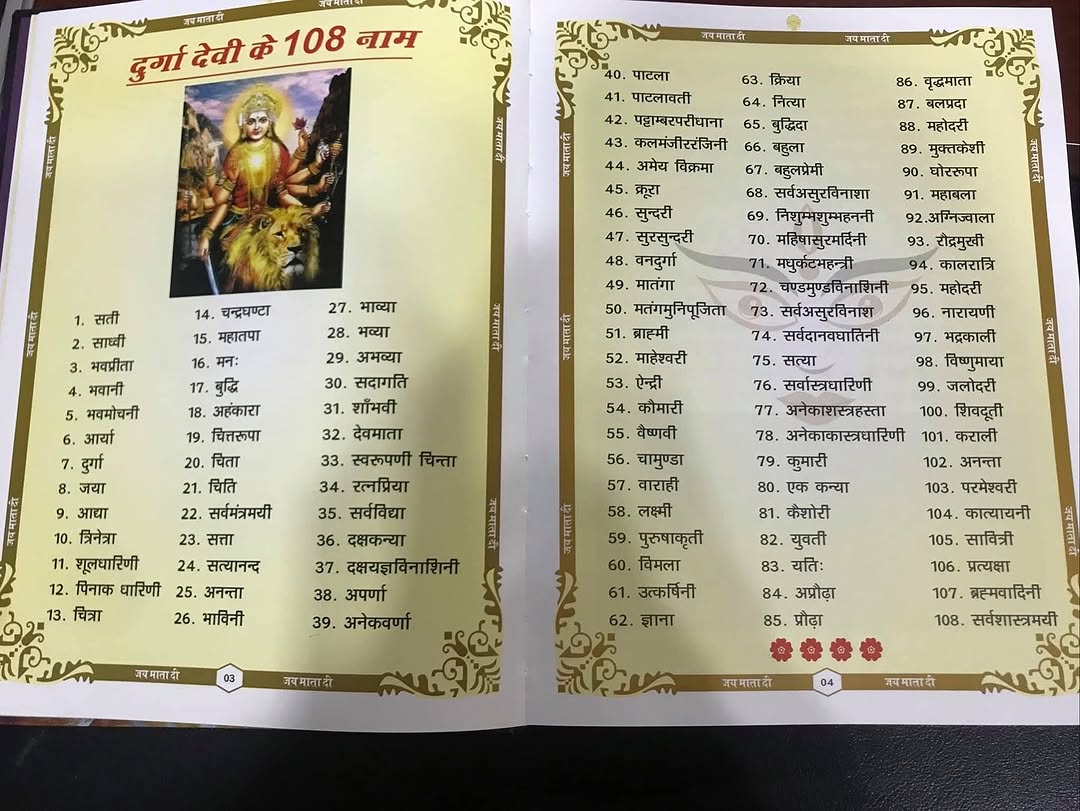 जय माता दी
जय माता दी
दुर्गा देवी के 108 नाम
1. सती
2. साध्वी
3. भवप्रीता
4. भवानी
5. भवमोचनी
6. आर्या
7. दुर्गा
8. जया
9. आद्या
10. त्रिनेत्रा
11. शूलधारिणी
12. पिनाक धारिणी
13. चित्रा
14. चन्द्रघण्टा
15. महातपा
16. मनः
17. बुद्धि
18. अहंकारा
19. चित्तरूपा
20. चिता
21. चिति
22. सर्वमंत्रमयी
23. सत्ता
24. सत्यानन्द
25. अनन्ता
26. भाविनी
27. भाव्या
28. भव्या
29. अभव्या
30. सदागति
31. शाँभवी
32. देवमाता
33. स्वरूपणी चिन्ता
34. रत्नप्रिया
35. सर्वविद्या
36. दक्षकन्या
37. दक्षयज्ञविनाशिनी
38. अपर्णा
39. अनेकवर्णा
जय माता दी
जय माता दी
जय माता दी
जय माता दी
जय माता दी
जय माता दी
जय माता दी
03
जय माता दी
जय माता दी
जय माता दी
40. पाटला
41. पाटलावती
42. पट्टाम्बरपरीघाना
43. कलमंजीररंजिनी
44. अमेय विक्रमा
45. क्रूरा
46. सुन्दरी
47. सुरसुन्दरी
48. वनदुर्गा
49. मातंगा
50. मतंगमुनिपूजिता
51. ब्राह्मी
52. माहेश्वरी
53. ऐन्द्री
54. कौमारी
55. वैष्णवी
56. चामुण्डा
57. वाराही
58. लक्ष्मी
59. पुरुषाकृती
60. विमला
61. उत्कर्षिनी
62. ज्ञाना
63. क्रिया
64. नित्या
65. बुद्धिदा
66. बहुला
67. बहुलप्रेमी
68. सर्वअसुरविनाशा
69. निशुम्भशुम्भहननी
70. महिषासुरमर्दिनी
71. मधुर्कटभहन्त्री
72. चण्डमुण्डविनाशिनी
73. सर्वअसुरविनाश
74. सर्वदानवघातिनी
75. सत्या
76. सर्वास्त्रधारिणी
77. अनेकाशस्त्रहस्ता
78. अनेकाकास्त्रधारिणी
79. कुमारी
80. एक कन्या
81. कैशोरी
82. युवती
83. यतिः
84. अप्रौढ़ा
85. प्रौढ़ा
86. वृद्धमाता
87. बलप्रदा
88. महोदरी
89. मुक्तकेशी
90. घोररूपा
91. महाबला
92.अग्निज्वाला
93. रौद्रमुखी
94. कालरात्रि
95. महोदरी
96. नारायणी
97. भद्रकाली
98. विष्णुमाया
99. जलोदरी
100. शिवदूती
101. कराली
102. अनन्ता
103. परमेश्वरी
104. कात्यायनी
105. सावित्री
106. प्रत्यक्षा
107. ब्रह्मवादिनी
108. सर्वशास्त्रमयी
जय माता दी
जय माता दी
जय माता दी
जय माता दी
जय माता दी
जय माता दी
जय माता दी
04
जय माता दी